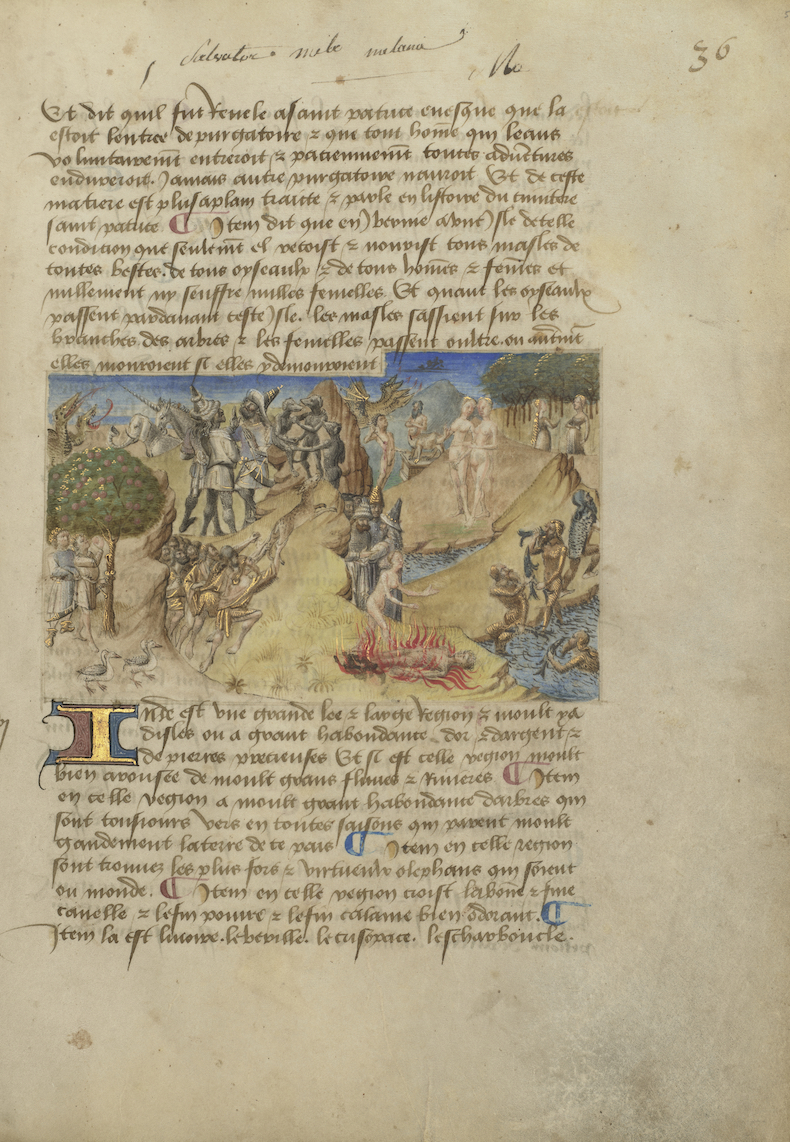 36
Et dit quil fut Reuele a saint patrice euesque que la
estoit lentree de purgatoire & que tout home qui leans
voluntairemt entreroit & paciemmemt toutes aduentures
endureroit. Jamais autre purgatoire nauroit Et de ceste
matiere est plus a plain traicte & parle en listoire du
saint patrice ¶ Item dit que en ybernie a vne isle de telle
condicion que seulemt el recoist & nourist tous masles de
toutes bestes. de tous oyseaulx & de tous homes & femes et
nullement ny seuffre nulles femelles Et quant les oyseaulx
passent pardauant ceste isle. les masles sassient sur les
branches des arbres & les femelles passent oultre. ou autmt
elles mouroient si elles y demouroient
Inde est vne grande lee & large Region & moult
disles ou a grant habondance dor & dargent &
de pierres precieuses Et si est celle region moult
bien arousee de moult grans fluues & Riuieres ¶ Item
en celle region a moult grant habondance darbres qui
sont tousiours vers en toutes saisons qui parent moult
grandement la terre de ce pais ¶ Item en celle region
sont trouuez les plus fors & virtueulx olephans qui soient
ou monde. ¶ Item en celle region croist la bone & fine
canelle & le fin poiure & le fin calame bien odorant. ¶
Item la est luoire. le berille. le lescharboucle.